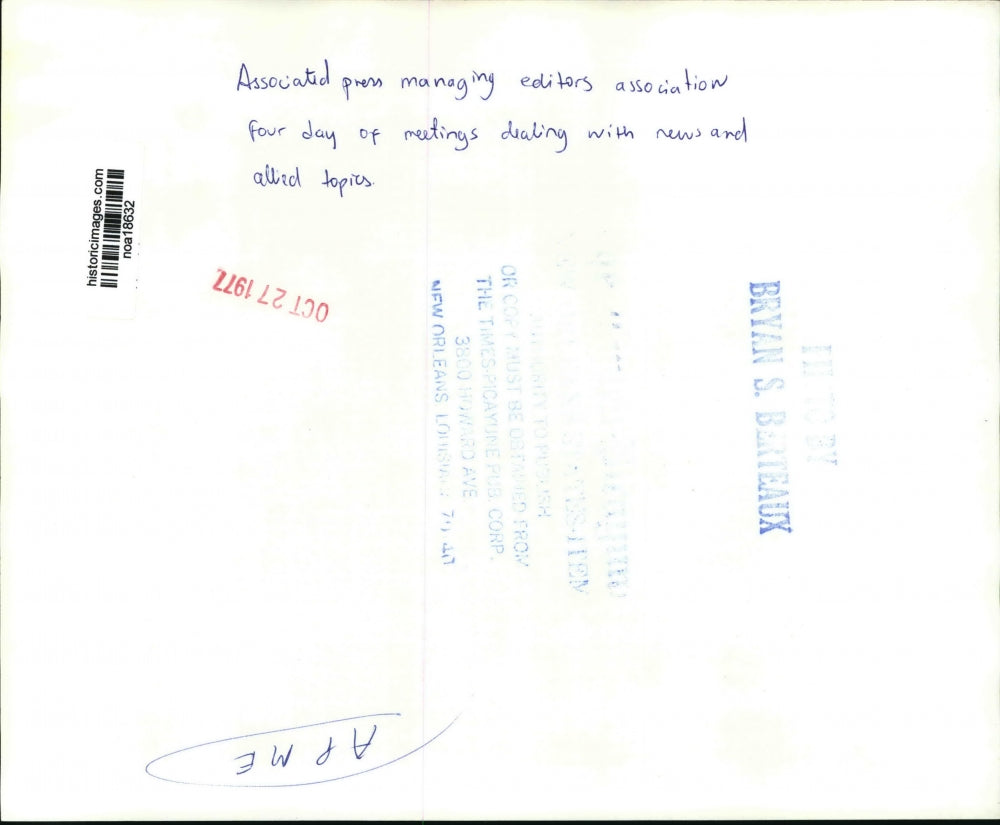 Associated press managing editors association
four day of meetings dealing with news and
allied topics.
historicimages.com
noa18632
OCT 27 1977
PHOTO BY
BRYAN S. BERTEAUX
AUTHORITY TO PUBLISH
OR COPY MUST BE OBTAINED FROM
THE TIMES-PICAYUNE PUB. CORP.
3800 HOWARD AVE
NEW ORLEANS LOUISIANA
APME